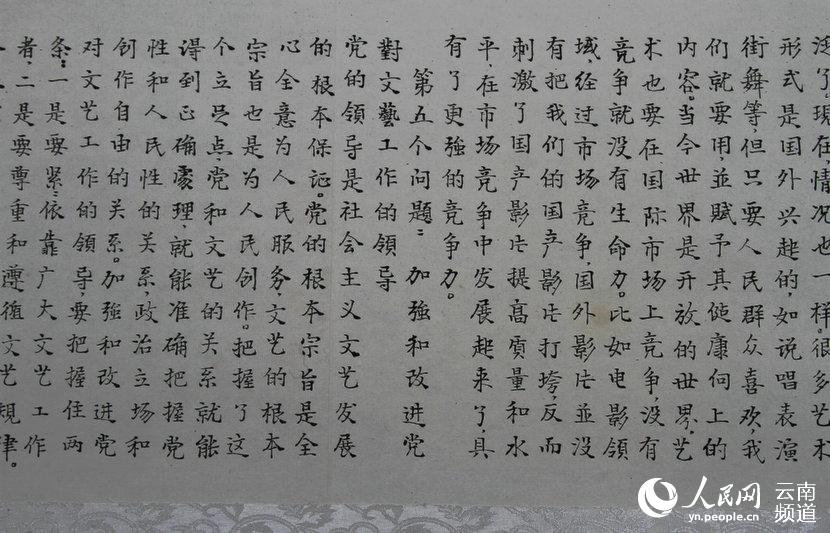 泛了。现在情况也一样。很多艺术
形式是国外兴起的,如说唱表演
街舞等,但只要人民群众喜欢,我
们就要用,並赋予其健康向上的
内容。当今世界是开放的世界,艺
术也要在国际市场上竞争,没有
竞争就没有生命力。比如电影領
域,经过市场竞争,国外影片並没
有把我们的国产影片打垮,反而
刺激了国产影片提高质量和水
平,在市场竞争中发展起来了,具
有了更強的竞争力。
第五个问题:加強和改进党
對文藝工作的領导
党的領导是社会主义文艺发展
的根本保证。党的根本宗旨是全
心全意为人民服务,文艺的根本
宗旨也是为人民创作。把握了这
个立足点,党和文艺的关系就能
得到正确處理,就能准确把握党
性和人民性的关系,政治立场和
创作自由的关系。加強和改进党
对文艺工作的領导,要把握住两
条:一是要紧依靠广大文艺工作
者,二是要尊重和遵循文艺规律。
人民网
yn.people.cn
云南
频道